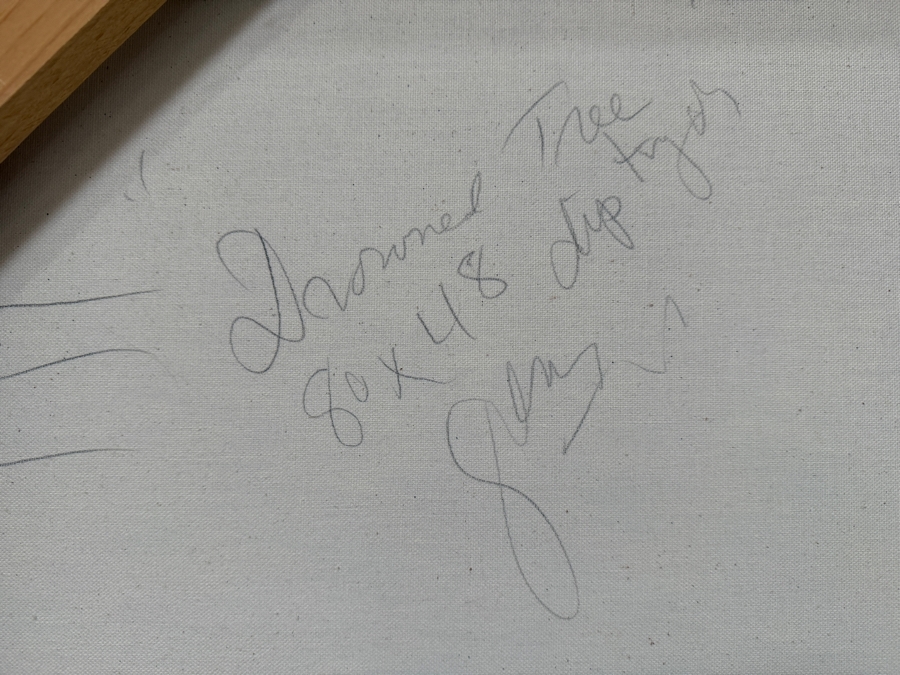 Drowned Tree
80 x 48 diptych